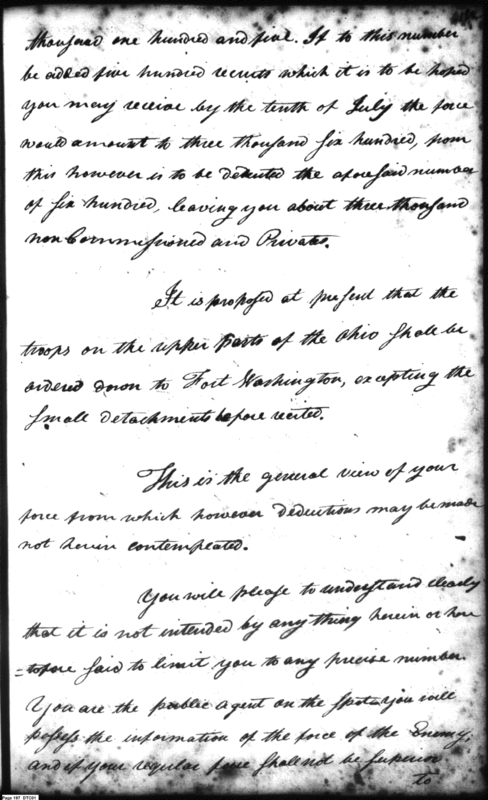 thousand one hundred and five. If to this number
be added five hundred recruits which it is to be hoped
you may receive by the tenth of July the force
would amount to three thousand six hundred, from
this however is to be deducted the aforesaid number
of six hundred, leaving you about three thousand
non Commissioned and Privates.
It is proposed at present that the
troops on the upper parts of the Ohio shall be
ordered down to Fort Washington, excepting the
small detachments before recited.
This is the general view of your
force from which however deductions may be made
not herein contemplated.
You will please to understand clearly
that it is not intended by any thing herein or here
=tofore said to limit you to any precise number.
You are the public agent on the spot you will
possess the information of the force of the Enemy,
and if your regular force shall not be superior
to
Page 197 DTC01